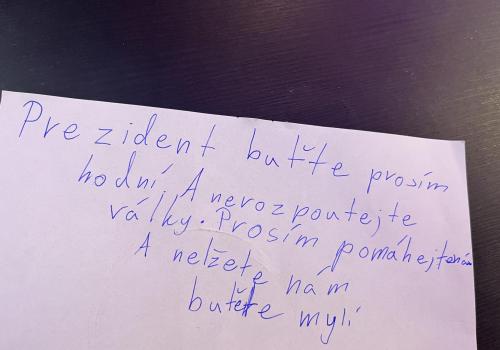 Prezident buťte prosím
hodní. A nerozpoutejte
války. Prosím pomáhejtenám
A nelžete nám
buťte mylí